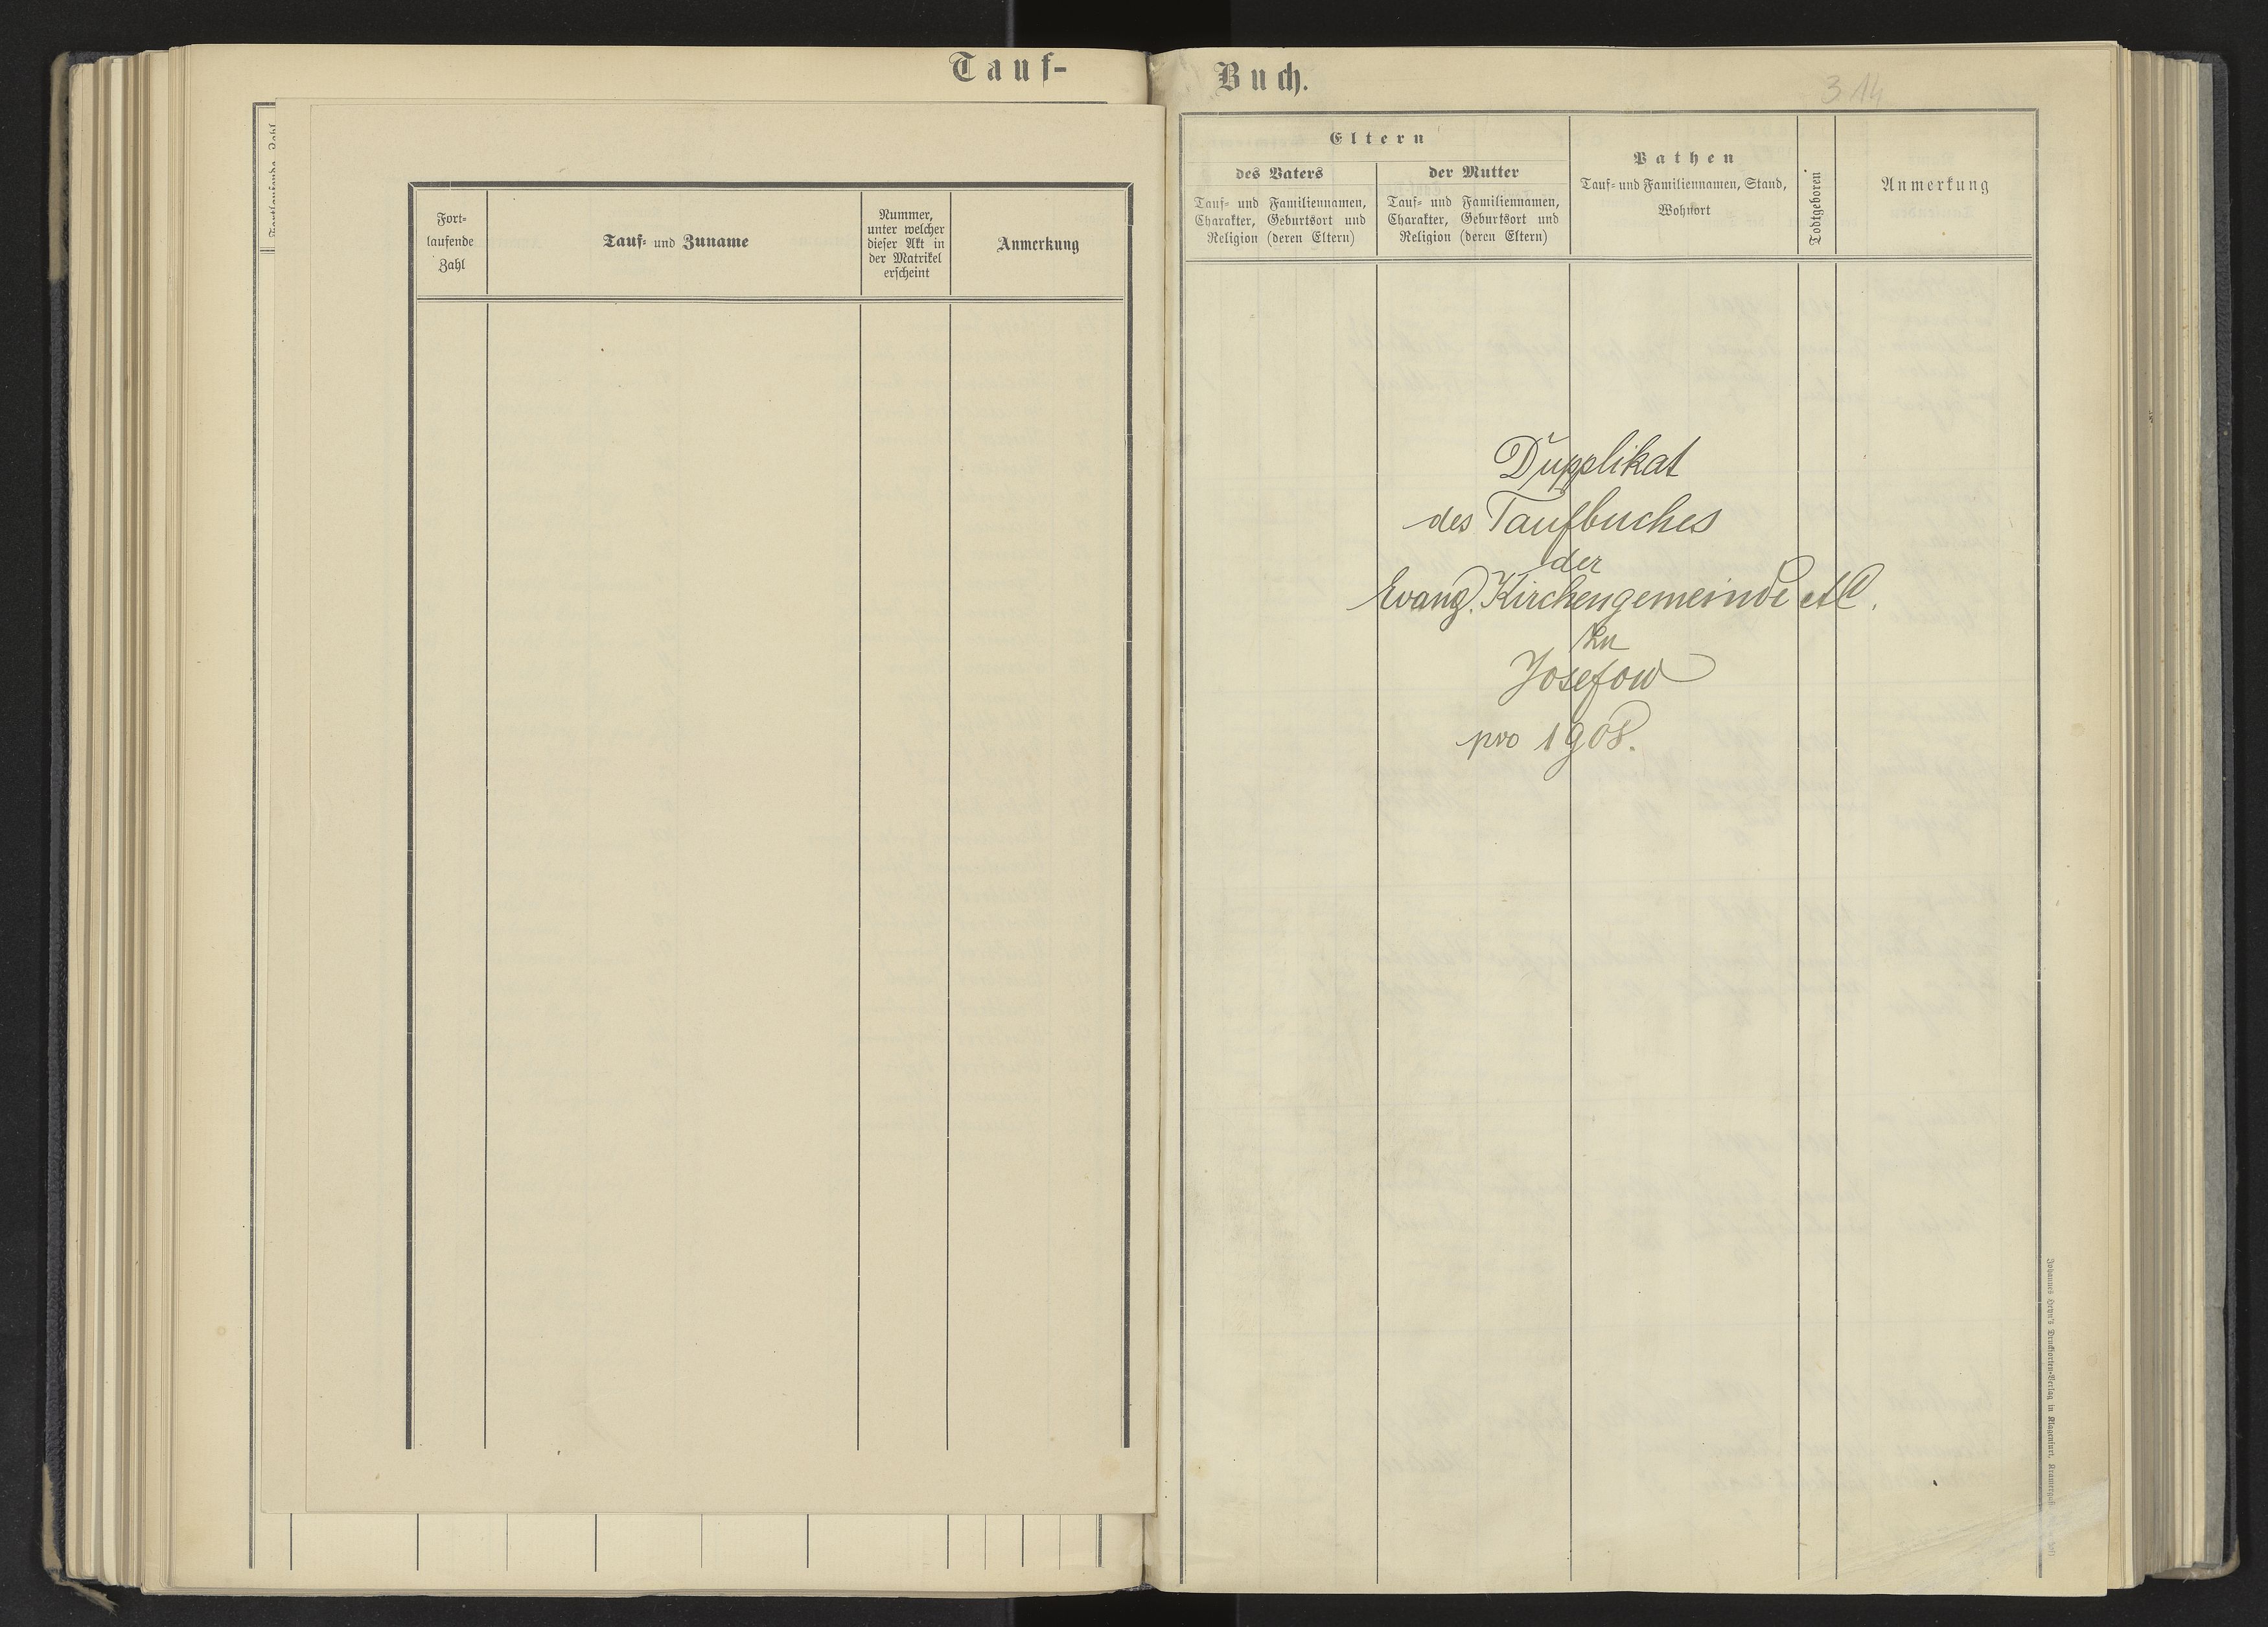 Tauf-
Fortlaufende Zahl
Fort-
laufende
Zahl
Tauf- und Zuname
Nummer,
unter welcher
dieser Akt in
der Matrikel
erscheint
Anmerkung
Buch.
314
Eltern
des Vaters
Tauf- und Familiennamen,
Charakter, Geburtsort und
Religion (deren Eltern)
der Mutter
Tauf- und Familiennamen,
Charakter, Geburtsort und
Religion (deren Eltern)
Pathen
Tauf- und Familiennamen, Stand,
Wohnort
Todtgeboren
Anmerkung
Dupplikat
des Taufbuches
der
Evang. Kirchengemeinde A C.
zu
Josefow
pro 1908.
Johannes Heyn's Drucksorten-Verlag in Klagenfurt,